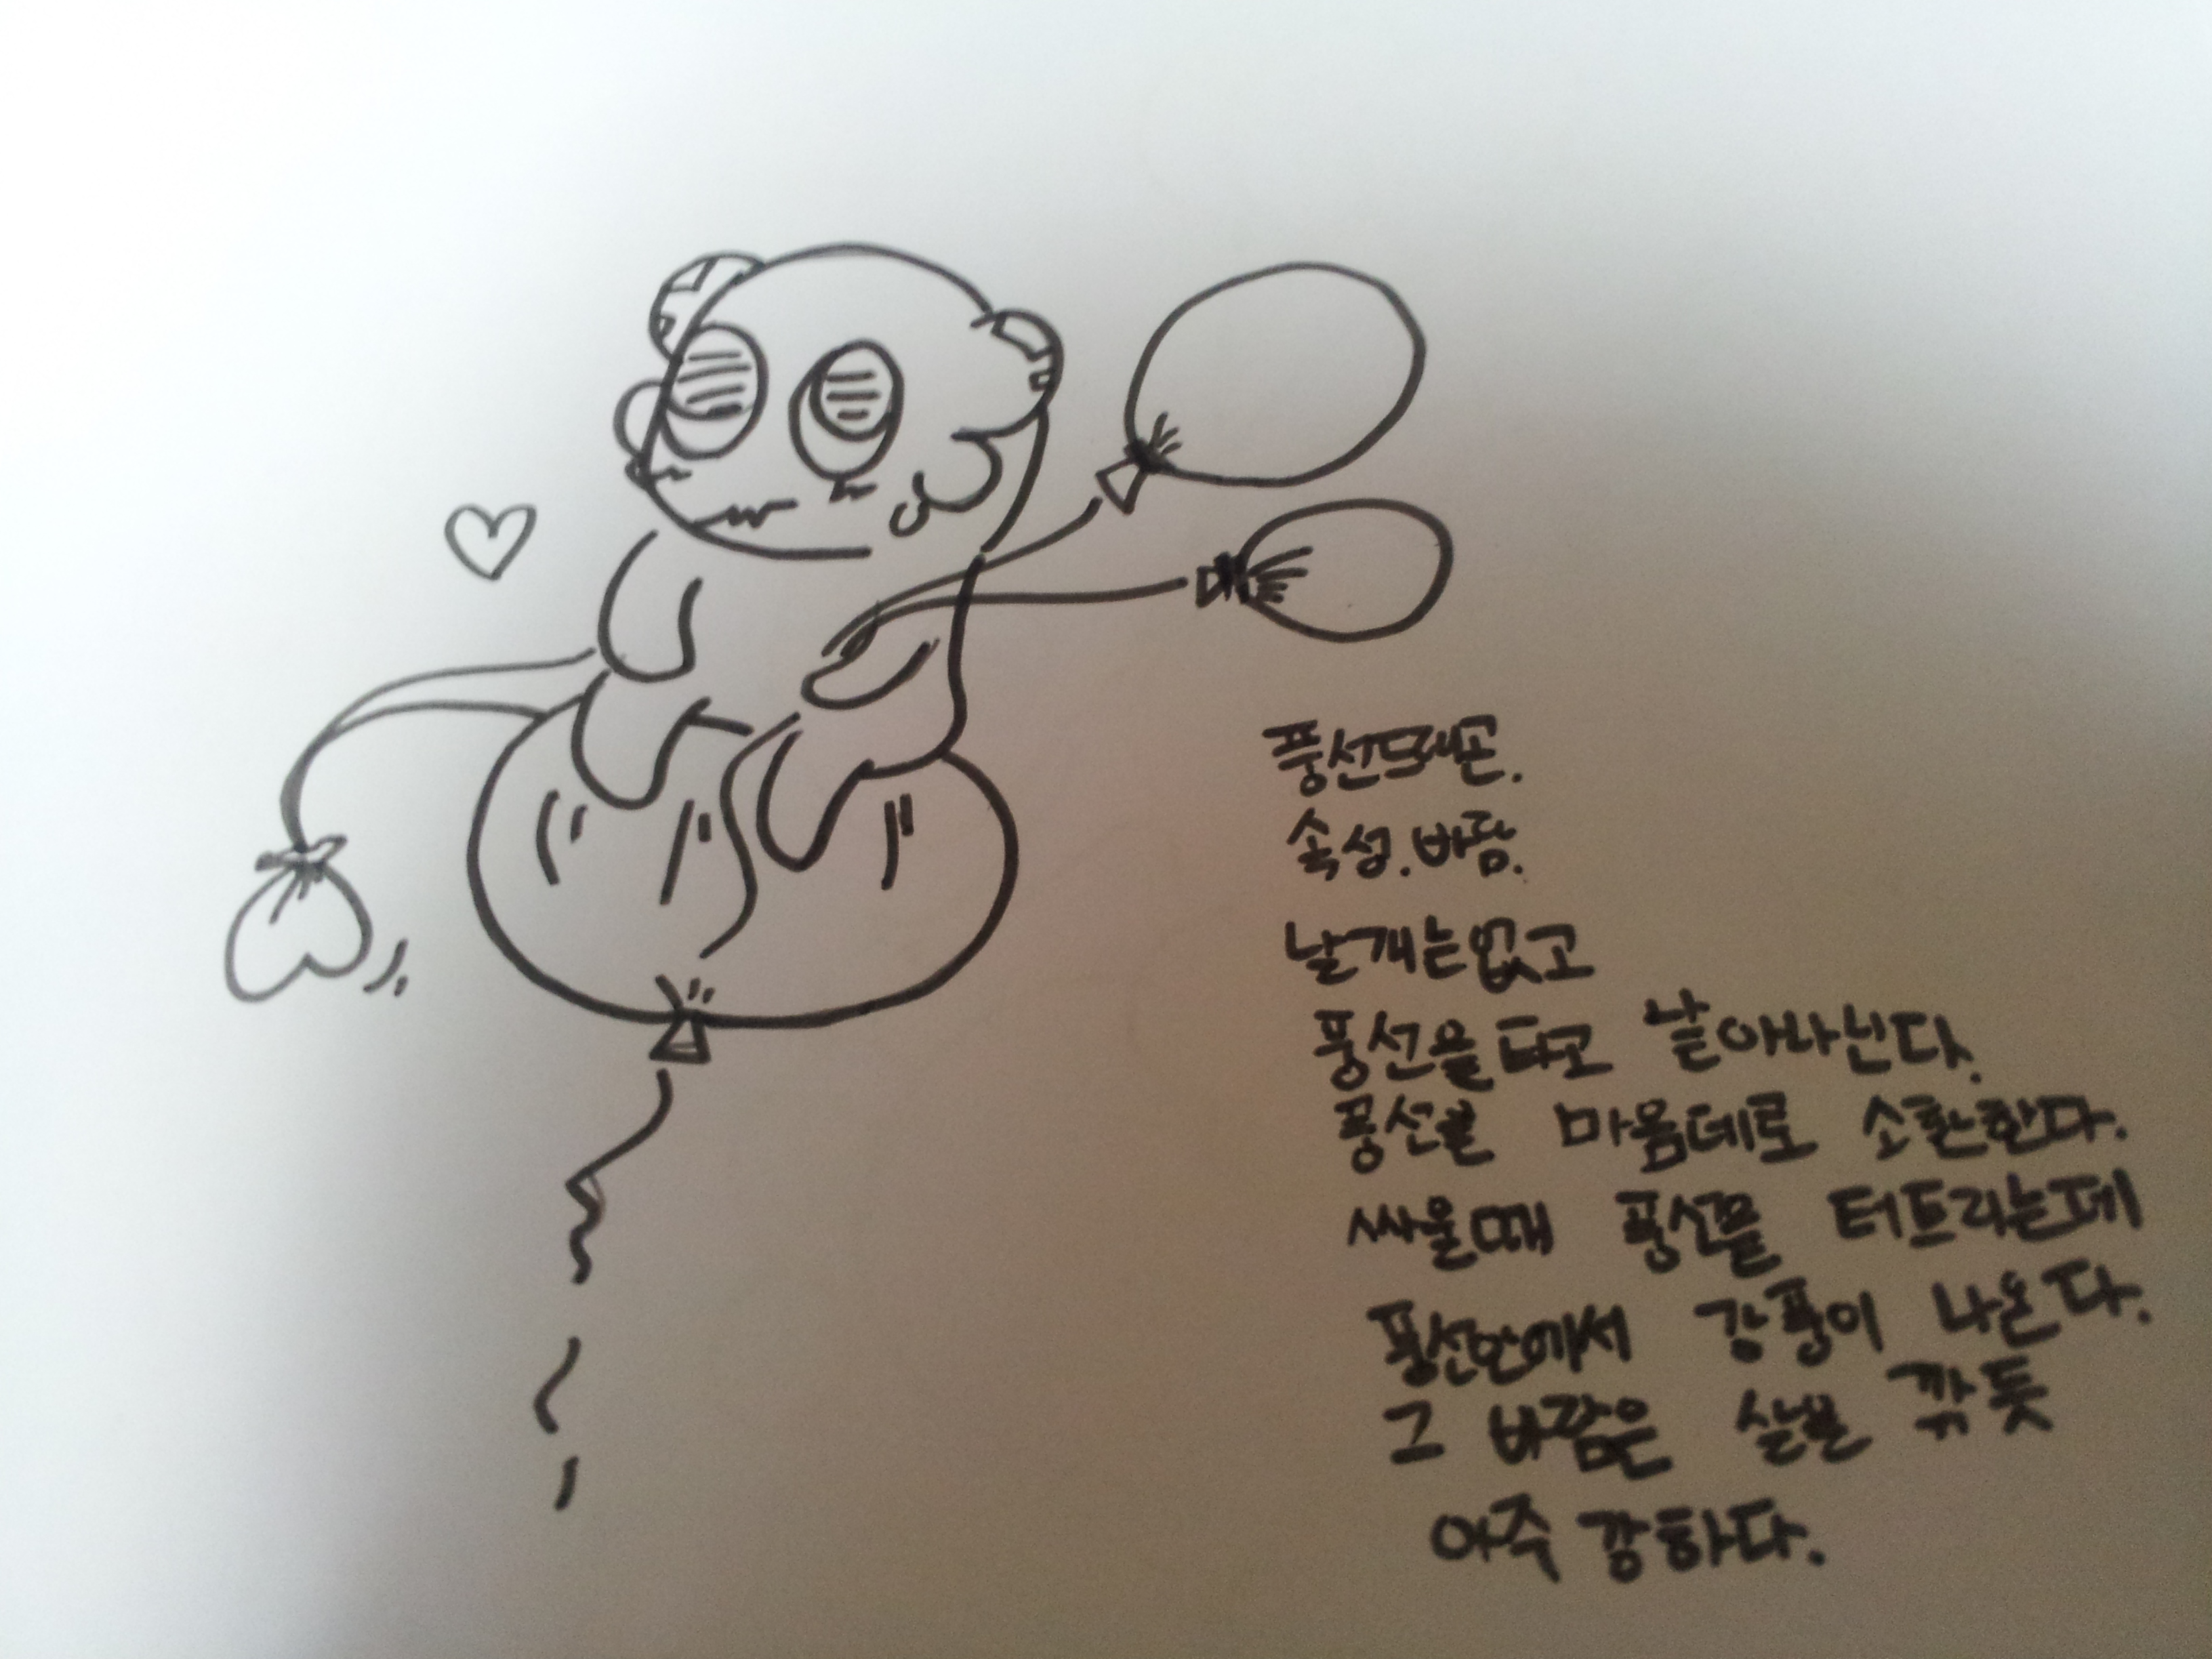 풍선드래곤.
속성.바람.
날개는없고
풍선을타고 날아다닌다.
풍선을 마음데로 소환한다.
싸울때 풍선을 터트리는데
풍선안에서 강풍이 나온다.
그 바람은 살을 깎듯
아주 강하다.